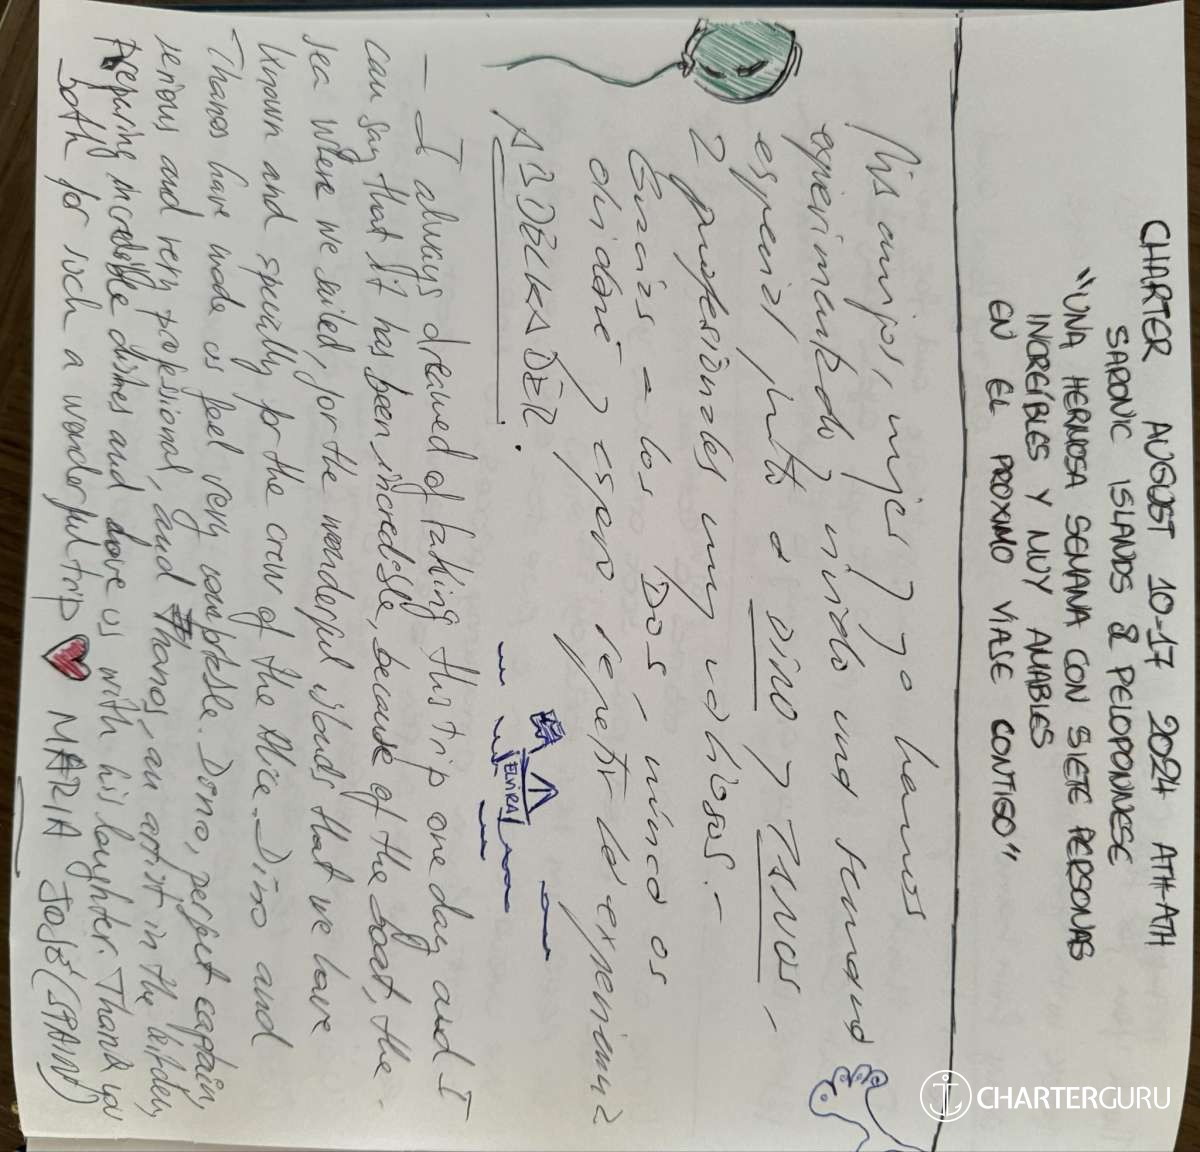 CHARTER AUGUST 10-17 2024 ATH-ATH
SARONIC ISLANDS & PELOPONNESE
"UNA HERMOSA SEMANA CON SIETE PERSONAS
INCREÍBLES Y MUY AMABLES
EN EL PROXIMO VIAJE CONTIGO"
Mis amigos, mujer y yo hemos
experimentado y vivido una semana
especial junto a DINO y TANOS,
2 profesionales muy valiosos.-
Gracias a los Dos, nunca os
olvidaré y espero repetir la experiencia
ABDELKADER.
ELVIRA
- I always dreamed of taking this trip one day and I
can say that it has been incredible, because of the boat, the
sea where we sailed, for the wonderful islands that we have
known and specially for the crew of the Alice. Dino and
Thanos have made us feel very comfortable. Dino, perfect captain,
serious and very professional, and Thanos, an artist in the kitchen,
preparing incredible dishes and love us with his laughter. Thank you
both for such a wonderful trip MARIA JOSÉ (SPAIN)
CHARTERGURU